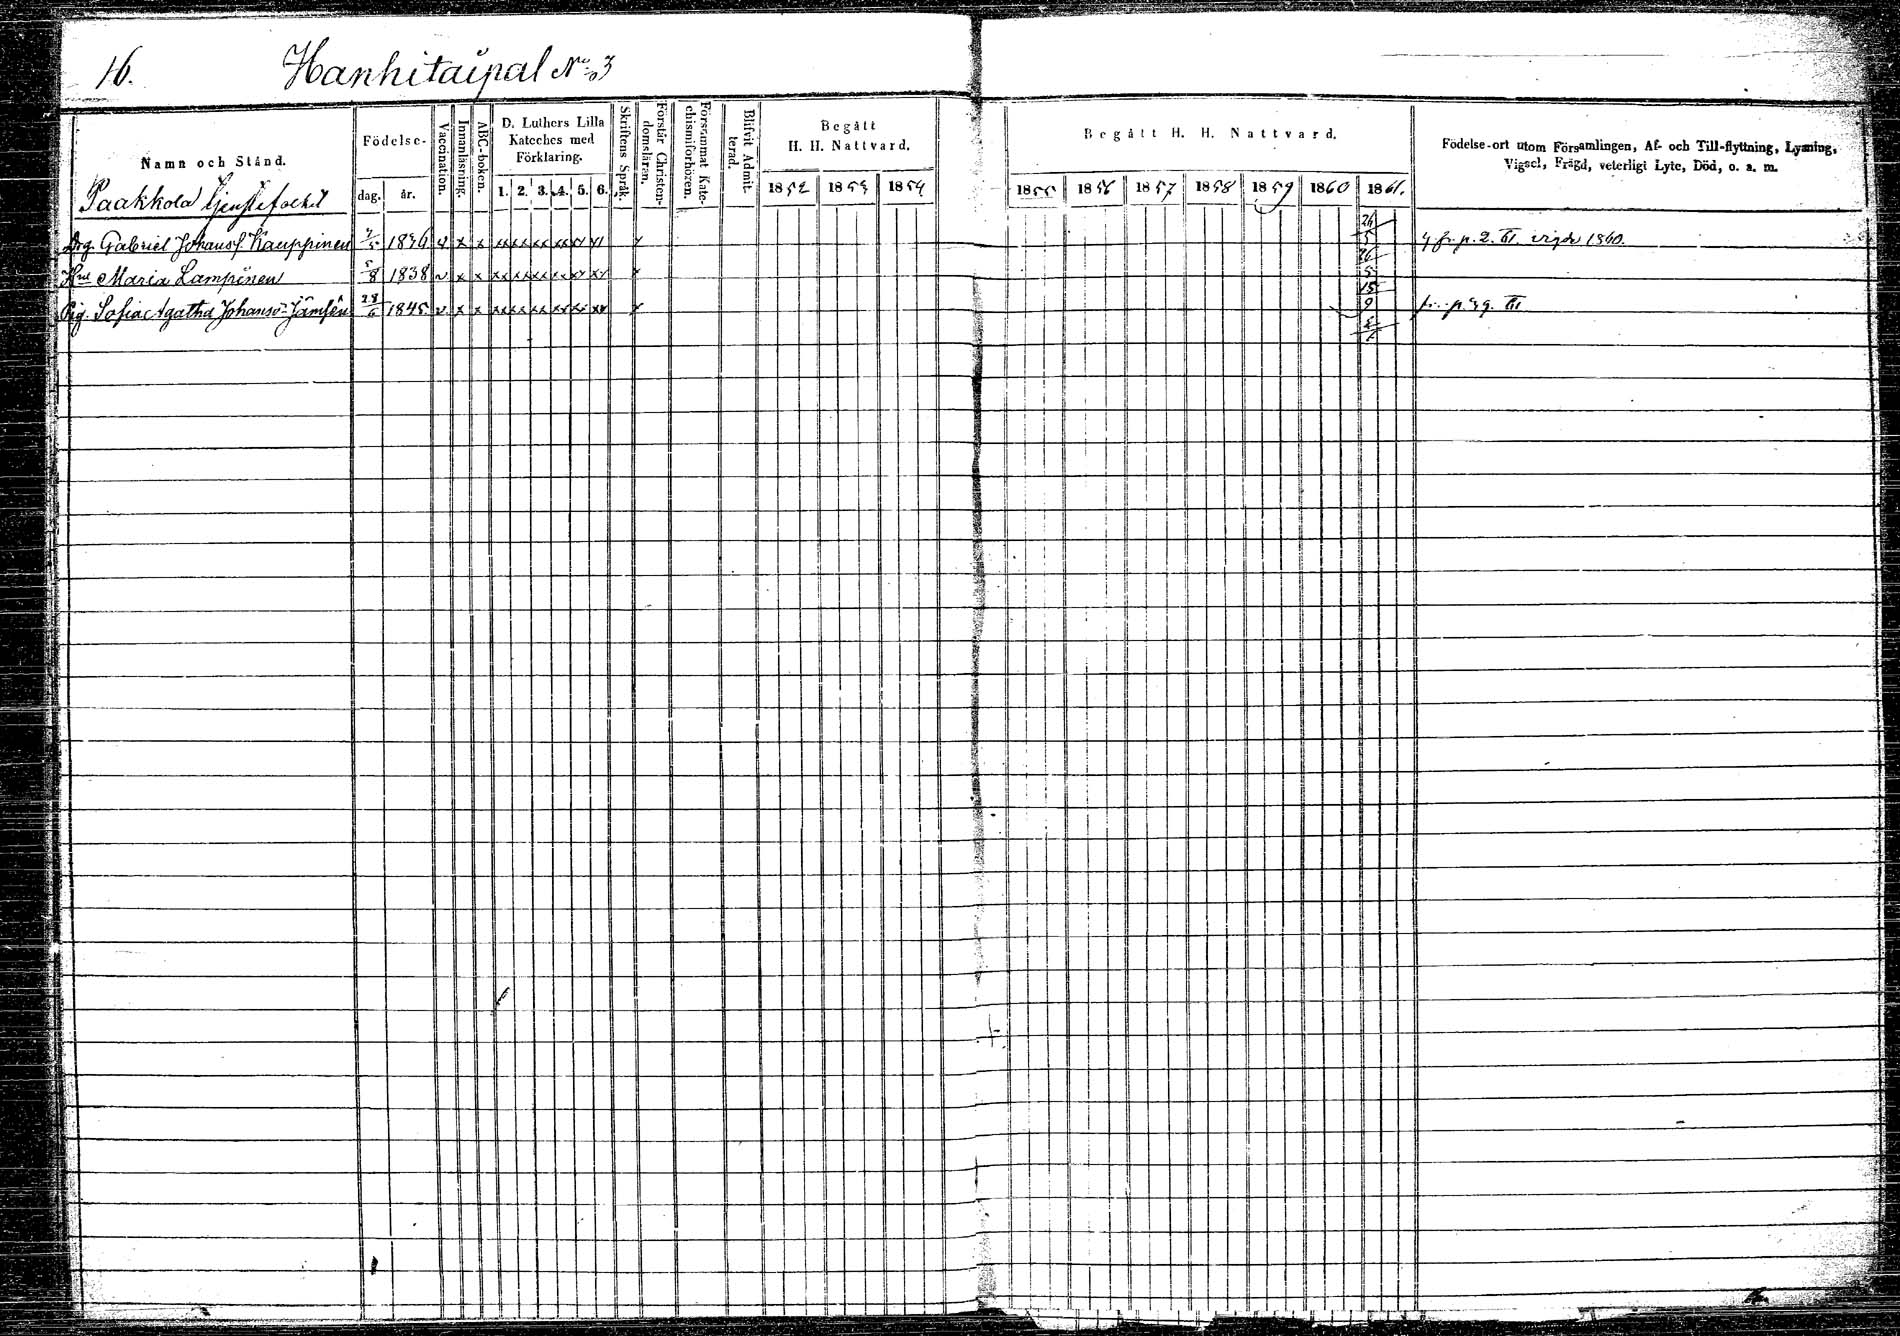 16. Hanhitaipal No 3
Namn och Stånd.
Födelse-
dag. år.
Vaccination.
Innanläsning.
ABC-boken.
D. Luthers Lilla
Kateches med
Förklaring.
1. 2. 3. 4. 5. 6.
Skriftens Språk.
Förstår Christen-
domsläran.
Försummat Kate-
chismiförhören.
Blifvit Admit-
terad.
Begått
H. H. Nattvard.
1852 1853 1854
Begått H. H. Nattvard.
1855 1856 1857 1858 1859 1860 1861.
Födelse-ort utom Församlingen, Af- och Till-flyttning, Lysning,
Vigsel, Frägd, veterligt Lyte, Död, o. a. m.
Paakkola tjenstefolket
Drg. Gabriel Johansf. Kauppinen 5 v x x xx xx xx xx xx xx x 26/5 vigde 1860.
Hu Maria Lampinen 5/8 1838 v x x xx xx xx xx xx xx x 26/5
Pig. Sofia Agatha Johansd. Jämsén 28/6 1845 v x x xx xx xx xx xx xx x 15/9 fr. p.